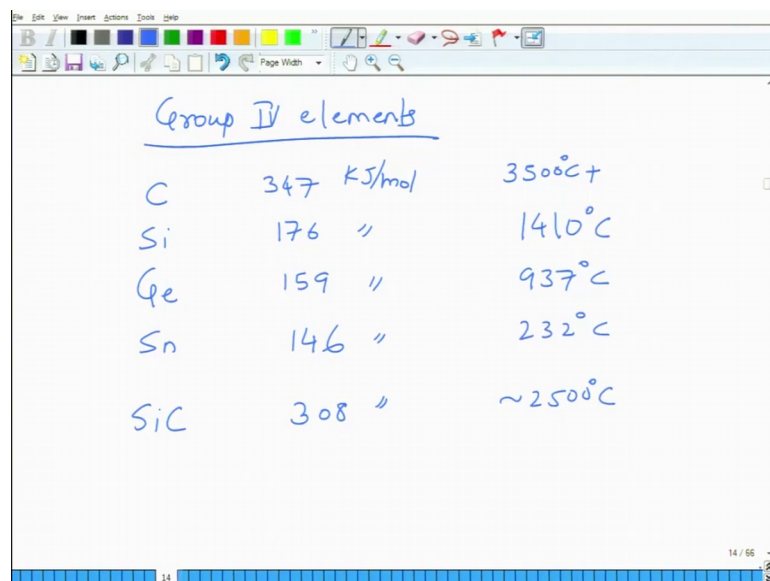 File Edit View Insert Actions Tools Help
B I
Page Width
Group IV elements
C 347 KJ/mol 3500°C+
Si 176 〃 1410°C
Ge 159 〃 937°C
Sn 146 〃 232°C
SiC 308 〃 ~2500°C
14 / 66
14